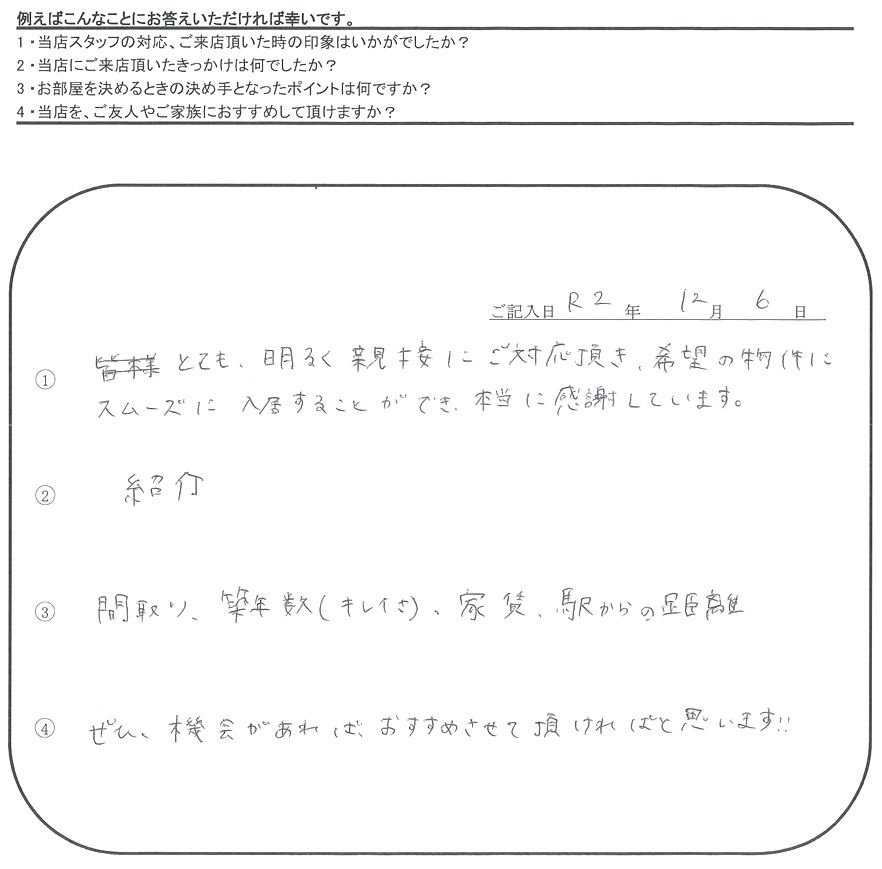 例えばこんなことにお答えいただければ幸いです。
1・当店スタッフの対応、ご来店頂いた時の印象はいかがでしたか？
2・当店にご来店頂いたきっかけは何でしたか？
3・お部屋を決めるときの決め手となったポイントは何ですか？
4・当店を、ご友人やご家族におすすめして頂けますか？
ご記入日 R2 年 12月 6 日
① 皆様 とても、明るく 親接に ご対応頂き、希望の物件に
スムーズに 入居することができ、本当に感謝しています。
② 紹介
③ 間取り、築年数(キレイさ)、家賃、駅からの距離
④ ぜひ、機会があれば、おすすめさせて頂ければと思います!!